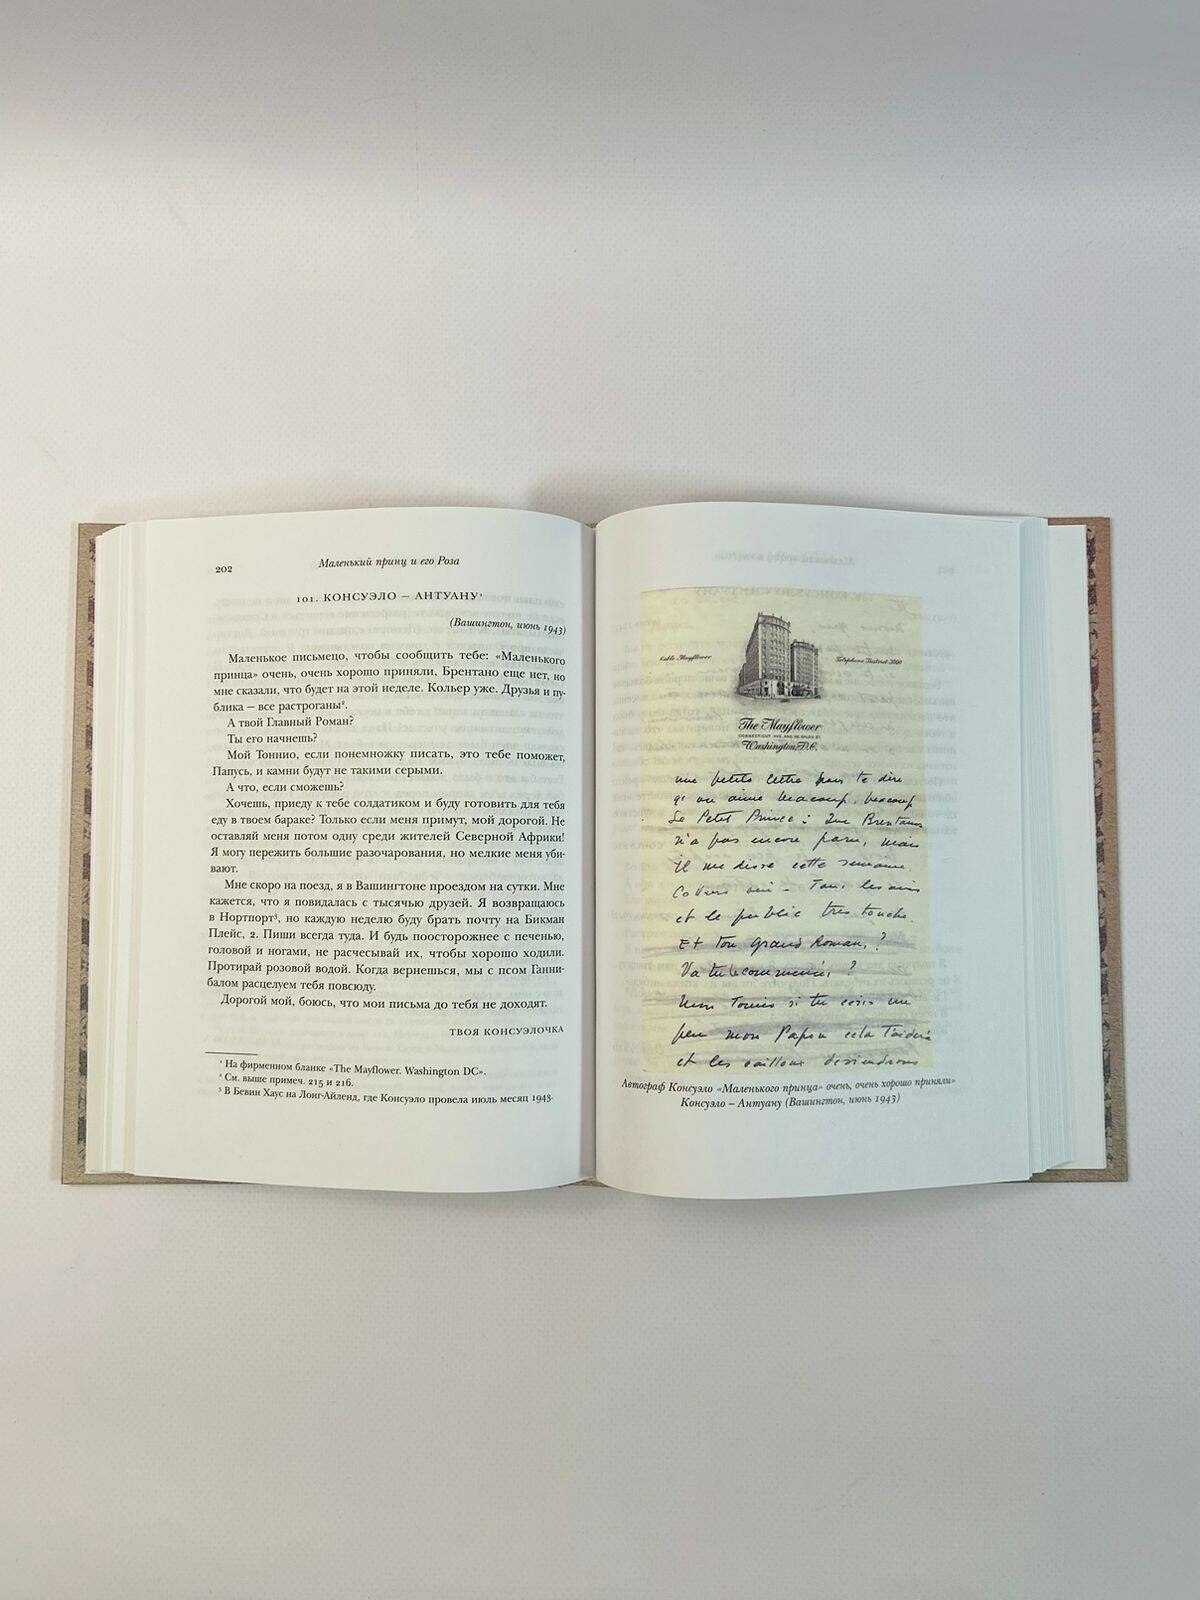 202
Маленький принц и его Роза
101. КОНСУЭЛО – АНТУАНУ¹
(Вашингтон, июнь 1943)
Маленькое письмецо, чтобы сообщить тебе: «Маленького
принца» очень, очень хорошо приняли, Брентано еще нет, но
мне сказали, что будет на этой неделе. Кольер уже. Друзья и пу-
блика – все растроганы².
А твой Главный Роман?
Ты его начнешь?
Мой Тоннио, если понемножку писать, это тебе поможет,
Папусь, и камни будут не такими серыми.
А что, если сможешь?
Хочешь, приеду к тебе солдатиком и буду готовить для тебя
еду в твоем бараке? Только если меня примут, мой дорогой. Не
оставляй меня потом одну среди жителей Северной Африки!
Я могу пережить большие разочарования, но мелкие меня уби-
вают.
Мне скоро на поезд, я в Вашингтоне проездом на сутки. Мне
кажется, что я повидалась с тысячью друзей. Я возвращаюсь
в Нортпорт³, но каждую неделю буду брать почту на Бикман
Плейс, 2. Пиши всегда туда. И будь поосторожнее с печенью,
головой и ногами, не расчесывай их, чтобы хорошо ходили.
Протирай розовой водой. Когда вернешься, мы с псом Ганни-
балом расцелуем тебя повсюду.
Дорогой мой, боюсь, что мои письма до тебя не доходят.
ТВОЯ КОНСУЭЛОЧКА
¹ На фирменном бланке «The Mayflower. Washington DC».
² См. выше примеч. 215 и 216.
³ В Бевин Хаус на Лонг-Айленд, где Консуэло провела июль месяц 1943.
Cable Mayflower
Telephone District 3000
The Mayflower
CONNECTICUT AVE. AND DE SALES ST.
Washington, D.C.
une petite lettre pour te dire
qu on aime beaucoup, beaucoup
Le Petit Prince: Brentanos
n'a pas encore paru, mais
il me disse cette semaine.
oui - Tous les amis
et le public très touché.
Et ton grand Roman, ?
Va tu le commencé, ?
Mon Tonio si tu ecris un
peu mon Papou cela t'aidera
et les cailloux deviendrons
Автограф Консуэло «Маленького принца» очень, очень хорошо приняли»
Консуэло – Антуану (Вашингтон, июнь 1943)